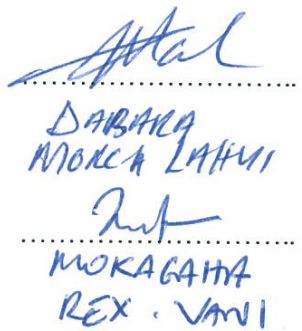 DABARA
MOREA LAHUI
MOKAGAHA
REX. VANI